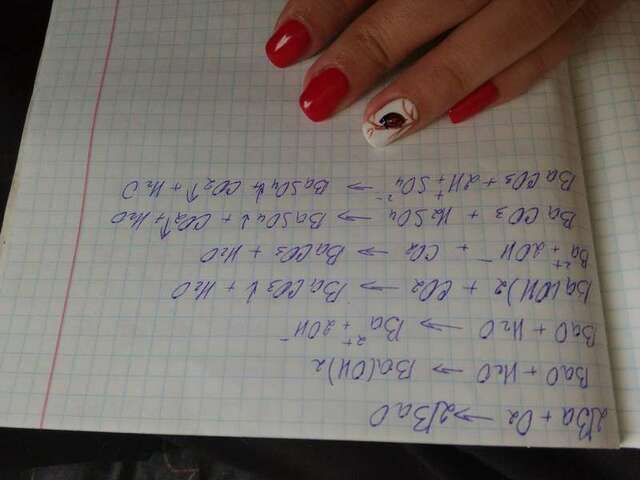 2Ba + O₂ → 2BaO
BaO + H₂O → Ba(OH)₂
BaO + H₂O → Ba²⁺ + 2OH⁻
Ba(OH)₂ + CO₂ → BaCO₃↓ + H₂O
Ba²⁺ + 2OH⁻ + CO₂ → BaCO₃ + H₂O
BaCO₃ + H₂SO₄ → BaSO₄↓ + CO₂↑ + H₂O
BaCO₃ + 2H⁺ + SO₄²⁻ → BaSO₄↓ + CO₂↑ + H₂O